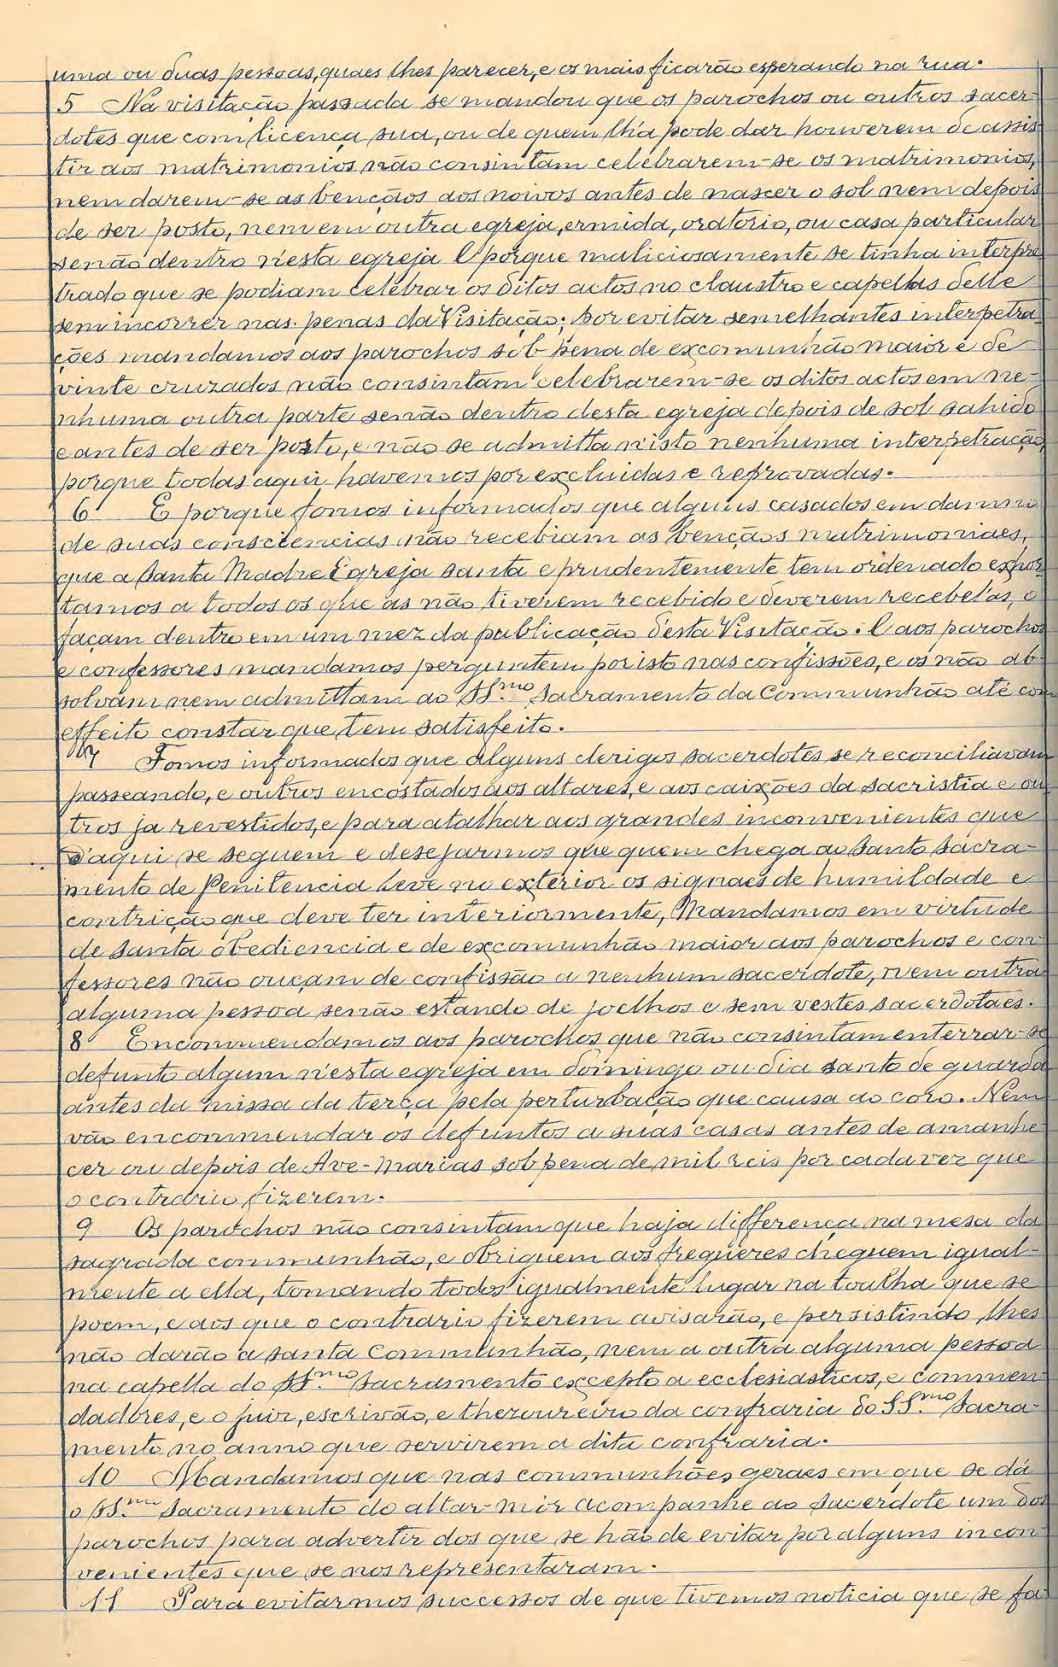 uma ou duas pessoas, quaes lhes parecer, e os mais ficarão esperando na rua.
5 Na visitação passada se mandou que os parochos ou outros sacer-
dotes que com licença sua, ou de quem lh'a pode dar houverem de assis
tir aos matrimonios não consintam celebrarem-se os matrimonios,
nem darem-se as bençãos aos noivos antes de nascer o sol nem depois
de ser posto, nem em outra egreja, ermida, oratorio, ou casa particular
senão dentro n'esta egreja E porque maliciosamente se tinha interpre
trado que se podiam celebrar os ditos actos no claustro e capellas delle
sem incorrer nas penas da Visitação; por evitar semelhantes interpetra
ções mandamos aos parochos sob pena de excomunhão maior e de
vinte cruzados não consintam celebrarem-se os ditos actos em ne-
nhuma outra parte senão dentro desta egreja depois de sol sahido
e antes de ser posto, e não se admitta n'isto nenhuma interpetração,
porque todas aqui havemos por excluidas e reprovadas.
6 E porque fomos informados que alguns casados em damno
de suas consciencias não recebiam as bençãos matrimoniaes,
que a Santa Madre Egreja santa e prudentemente tem ordenado exhor
tamos a todos os que as não tiverem recebido e deverem recebel'as, o
façam dentro em um mez da publicação d'esta Visitação. E aos parochos
e confessores mandamos perguntem por isto nas confissões, e os não ab-
solvam nem admittam ao SS.mo Sacramento da Communhão até com
effeito constar que tem satisfeito.
7 Fomos informados que alguns clerigos sacerdotes se reconciliavam
passeando, e outros encostados aos altares, e aos caixões da sacristia e ou
tros ja revestidos, e para atalhar aos grandes inconvenientes que
d'aqui se seguem e desejarmos que quem chega ao Santo Sacra-
mento de Penitencia leve no exterior os signaes de humildade e
contrição que deve ter interiormente, Mandamos em virtude
de santa obediencia e de excomunhão maior aos parochos e con
fessores não ouçam de confissão a nenhum sacerdote, nem outra
alguma pessoa senão estando de joelhos e sem vestes sacerdotaes.
8 Encommendamos aos parochos que não consintam enterrar-se
defunto algum n'esta egreja em domingo ou dia santo de guarda
antes da missa da terça pela perturbação que causa ao coro. Nem
vão encommendar os defuntos a suas casas antes de amanhe
cer ou depois de Ave-Marias sob pena de mil reis por cada vez que
o contrario fizerem.
9 Os parochos não consintam que haja differença na mesa da
sagrada communhão, e obriguem aos freguezes cheguem igual-
mente a ella, tomando todos igualmente lugar na toalha que se
poem, e aos que o contrario fizerem avisarão, e persistindo, lhes
não darão a santa Communhão, nem a outra alguma pessoa
na capella do SS.mo Sacramento excepto a ecclesiasticos, e commen
dadores, e o juiz, escrivão, e thezoureiro da confraria do SS.mo Sacra-
mento no anno que servirem a dita confraria.
10 Mandamos que nas communhões geraes em que se dá
o SS.mo Sacramento do altar-mór acompanhe ao sacerdote um dos
parochos para advertir dos que se hão de evitar por alguns incon
venientes que se nos representaram.
11 Para evitarmos successos de que tivemos noticia que se fa